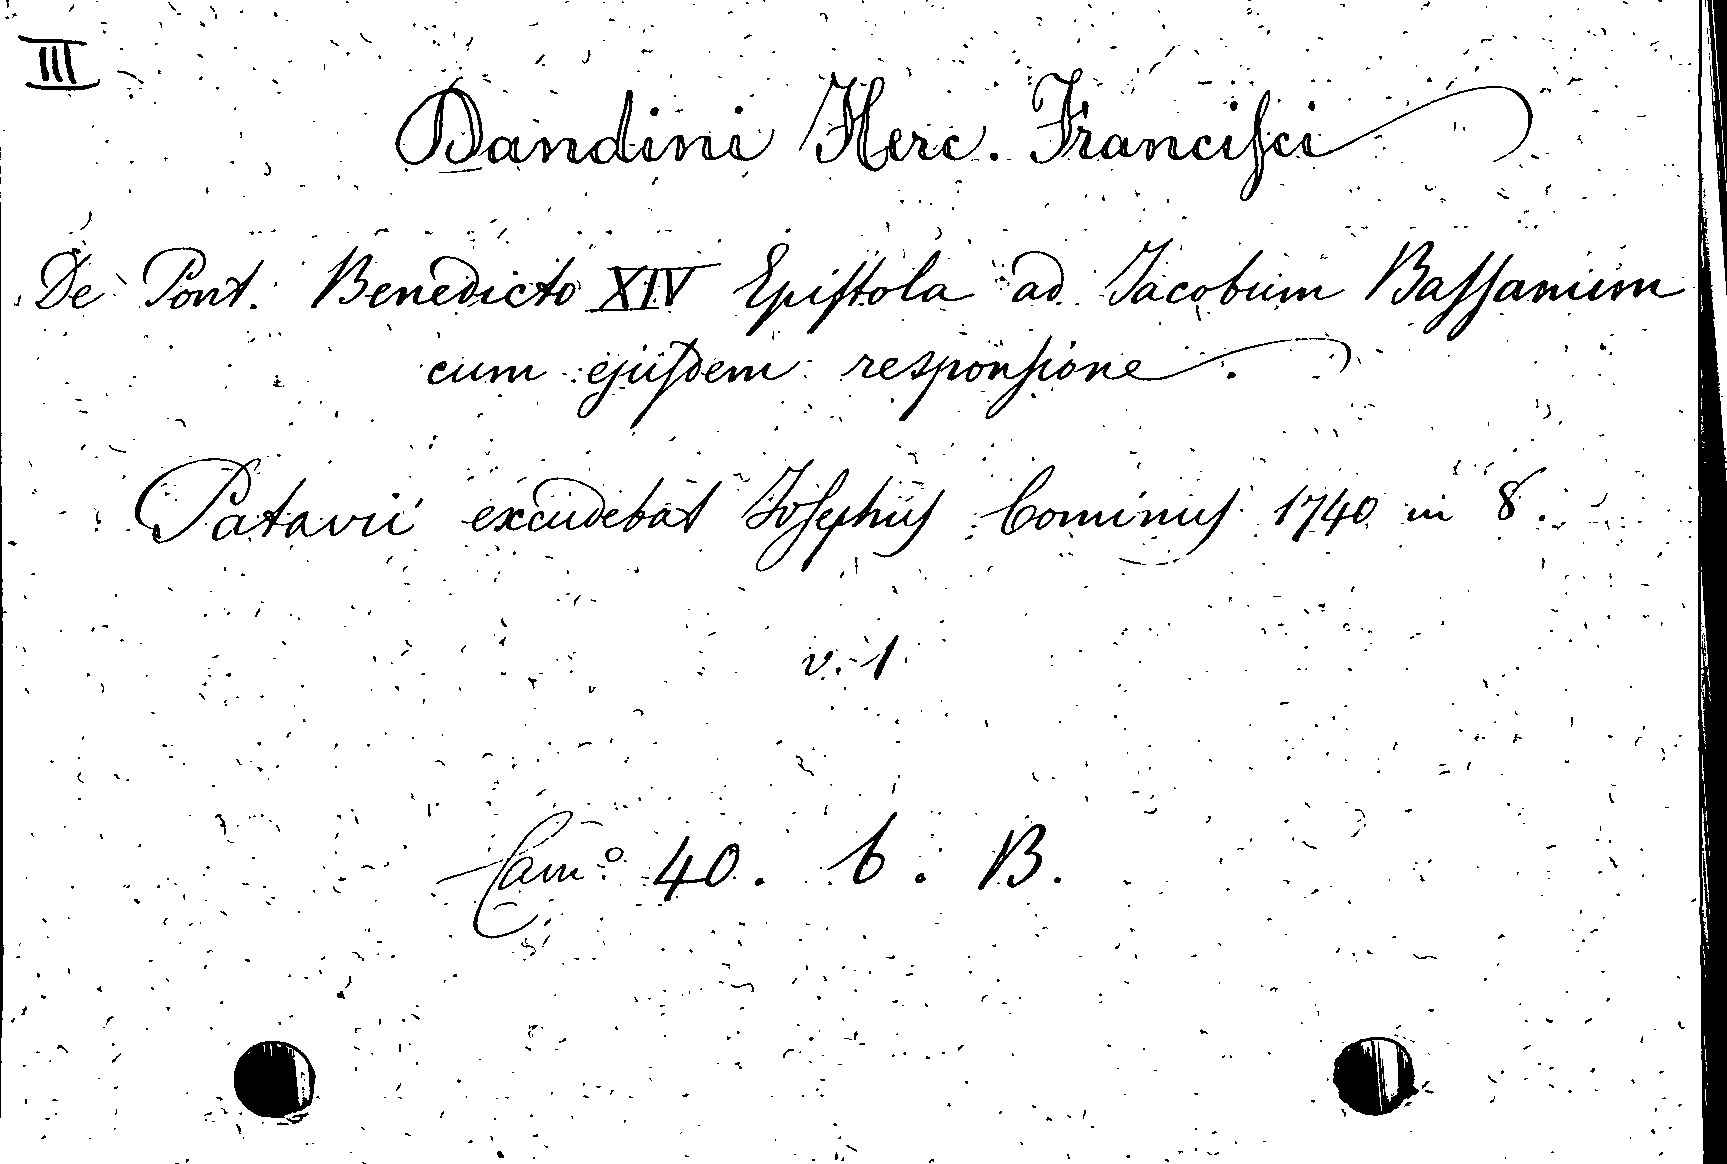 III
Dandini Herc. Franciſci
De Pont. Benedicto XIV Epiſtola ad Jacobum Baſſanum
cum ejuſdem responſione.
Patavii excudebat Joſephus Cominus 1740 in 8.
v. 1.
Cam.º 40. b. B.